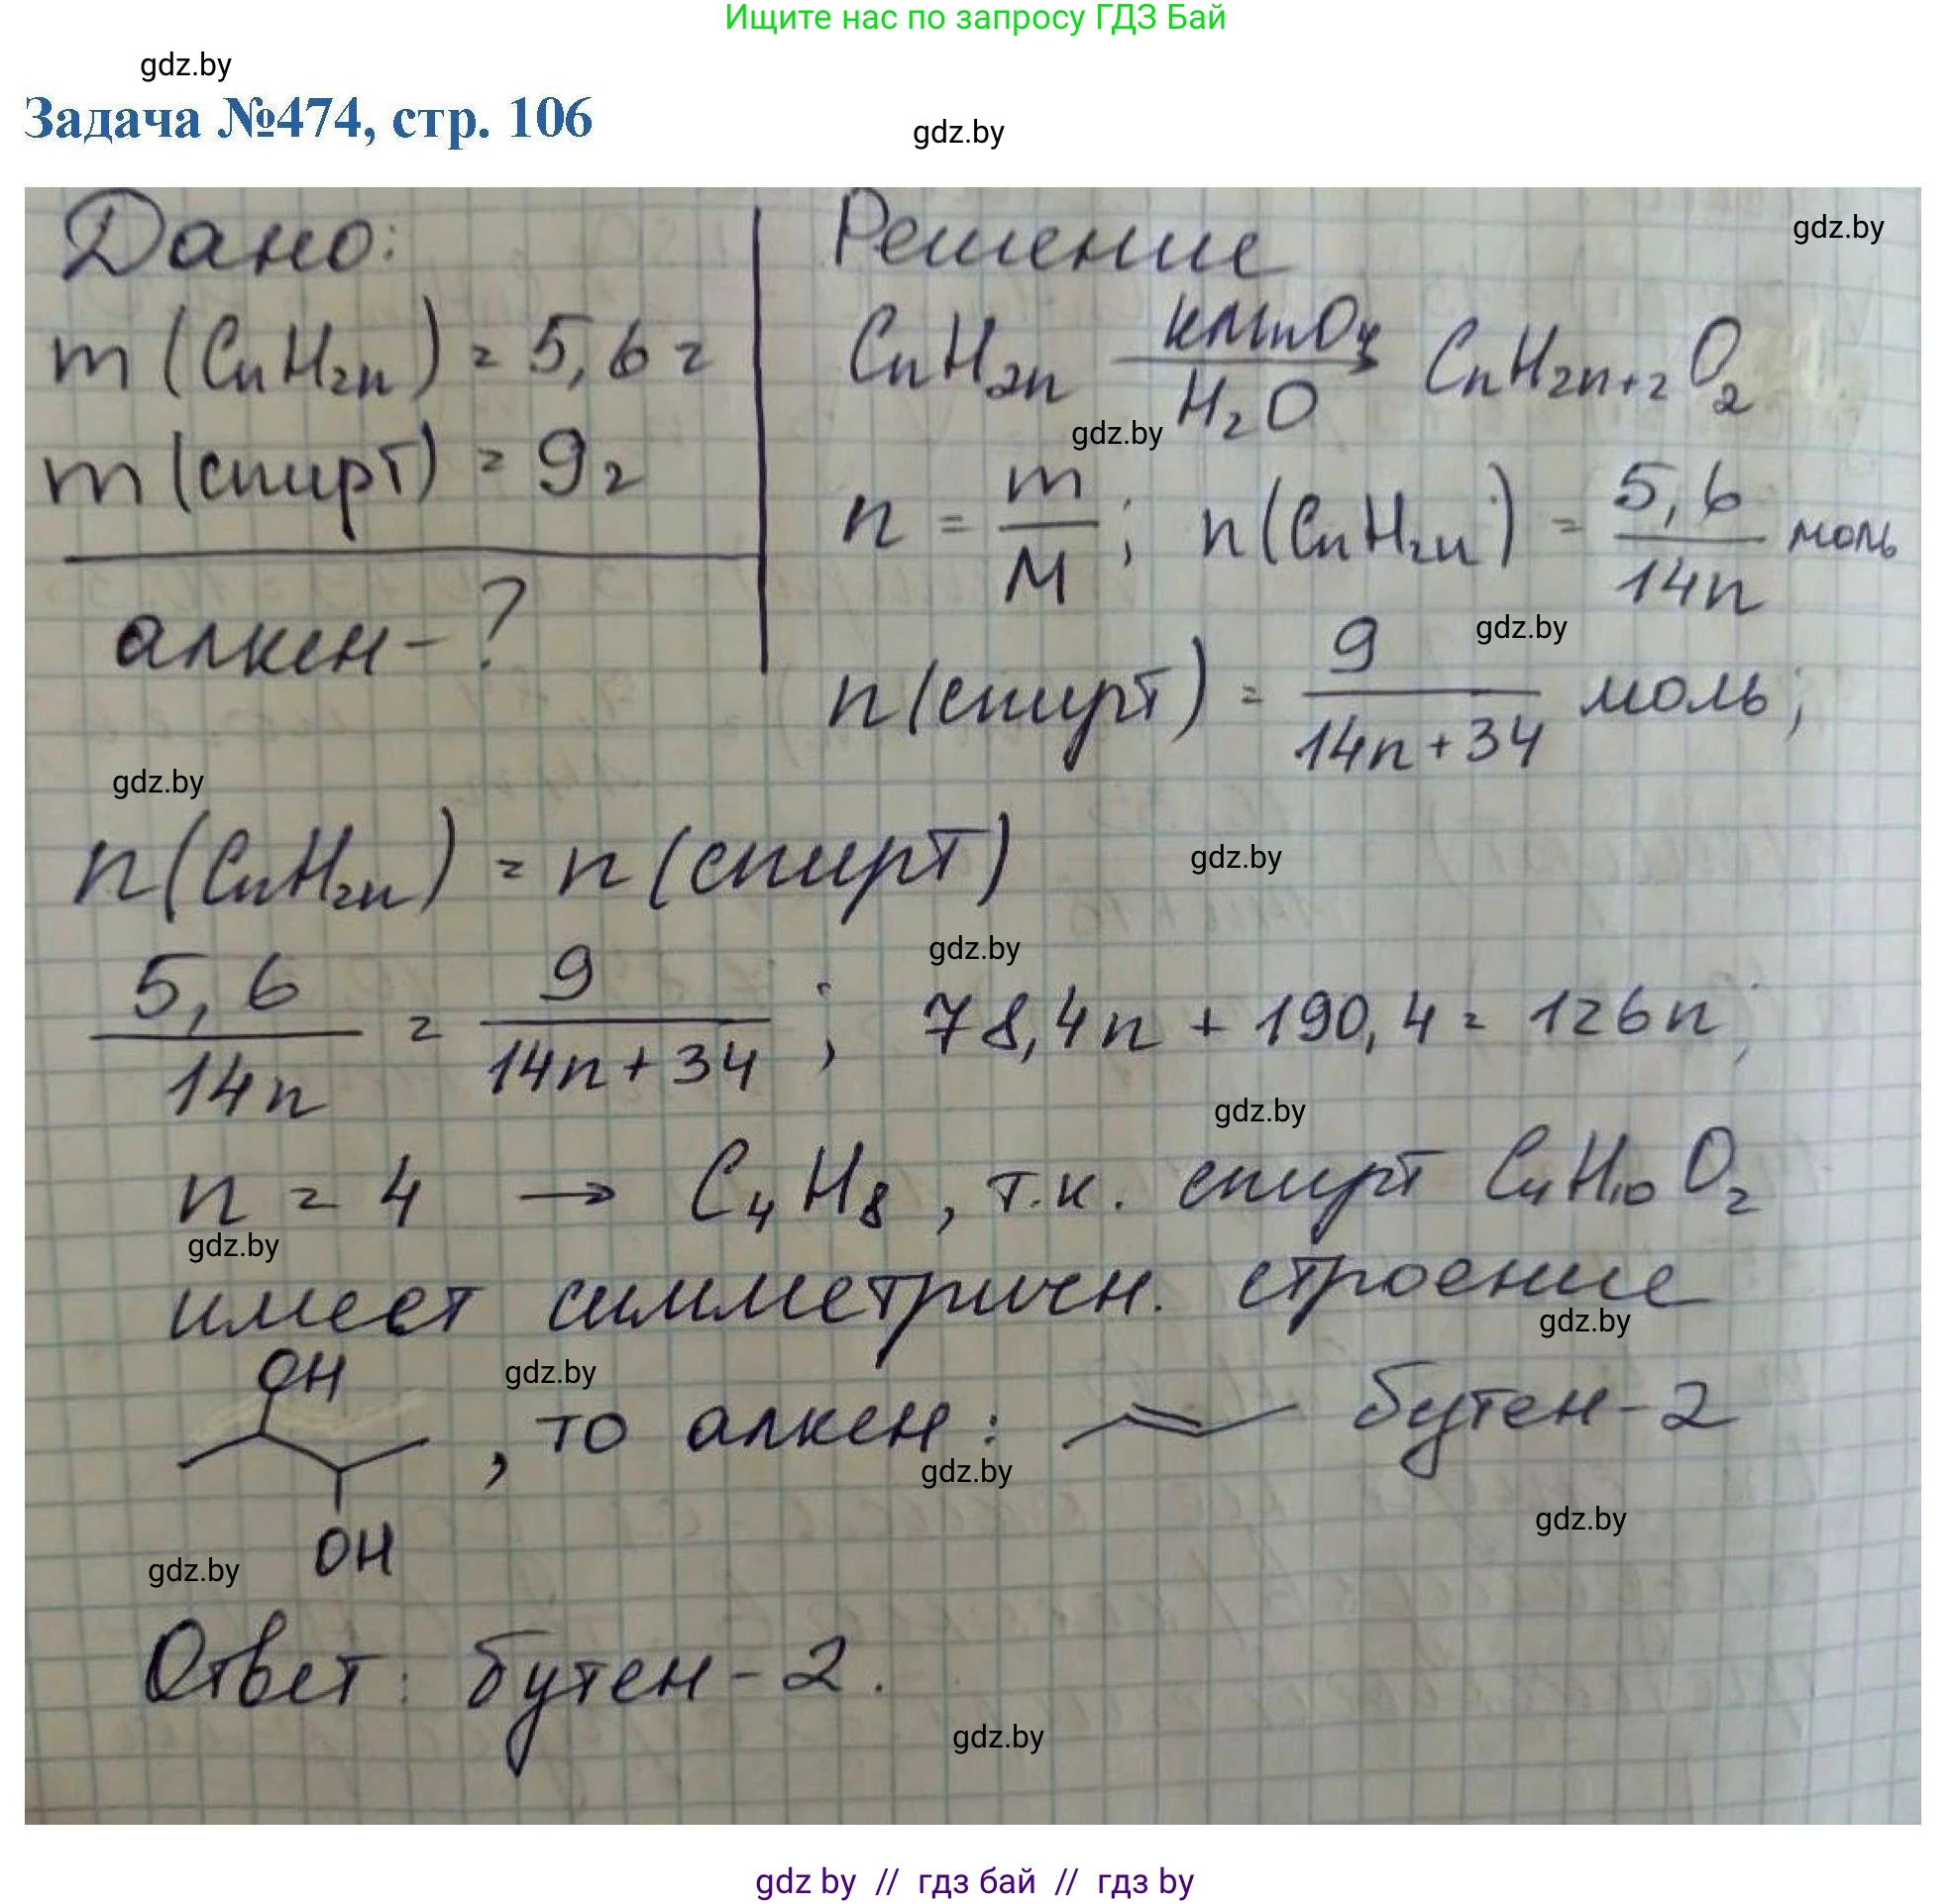 Ищите нас по запросу ГДЗ Бай
gdz.by
Задача №474, стр. 106
gdz.by
Дано:
m (CnH2n) = 5,6 г
m (спирт) = 9 г
алкен - ?
Решение
gdz.by
CnH2n KMnO4 / H2O → CnH2n+2O2
gdz.by
n = m/M ; n(CnH2n) = 5,6/14n моль
gdz.by
n(спирт) = 9/14n+34 моль;
gdz.by
n(CnH2n) = n(спирт)
gdz.by
gdz.by
5,6/14n = 9/14n+34 ; 78,4n + 190,4 = 126n;
gdz.by
n = 4 → C4H8, т.к. спирт C4H10O2
gdz.by
имеет симметричн. строение
gdz.by
OH
gdz.by
, то алкен: бутен-2
gdz.by
gdz.by
OH
gdz.by
Ответ: бутен-2.
gdz.by
gdz by // гдз бай // гдз by